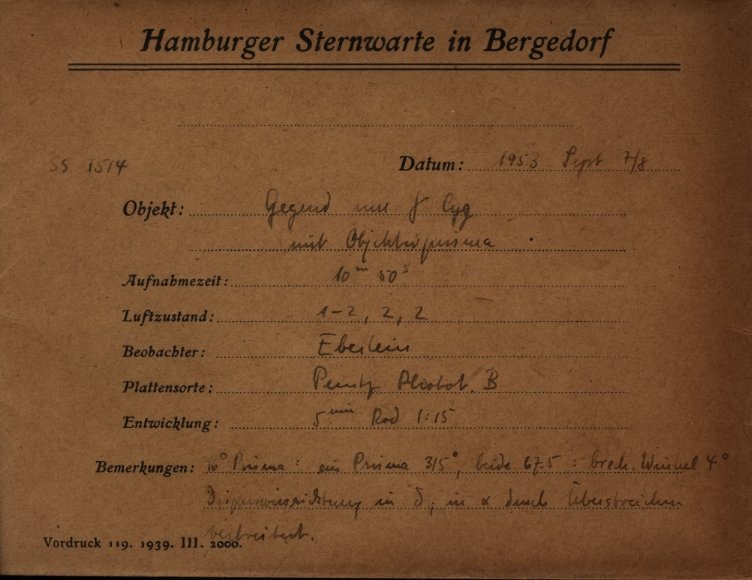 Hamburger Sternwarte in Bergedorf
SS 1514
Datum: 1953 Sept 7/8
Objekt: Gegend um γ Cyg
mit Objektivprisma
Aufnahmezeit: 10m 50s
Luftzustand: 1-2, 2, 2
Beobachter: Eberlein
Plattensorte: B
Entwicklung: 5 min Rod 1:15
Bemerkungen: Prisma: ein Prisma 315°, beide 67.5: brech. Winkel 4°
Dispersionsrichtung in δ, in α durch Überstreichen
verbreitert.
Vordruck 119. 1939. III. 2000.